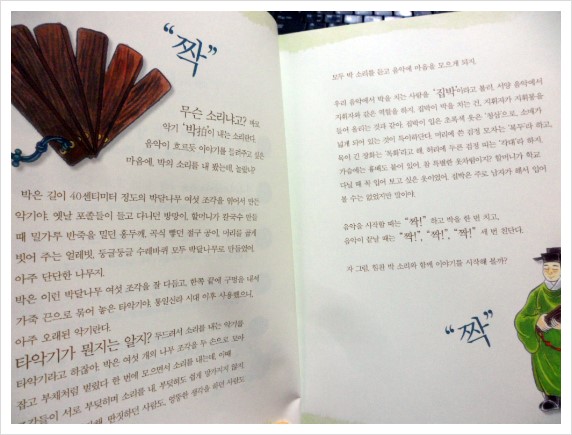 “짝”
무슨 소리냐고? 바로
악기 '박拍'이 내는 소리란다.
음악이 흐르듯 이야기를 들려주고 싶은
마음에, 박의 소리를 내 봤는데, 놀랐니?
박은 길이 40센티미터 정도의 박달나무 여섯 조각을 엮어서 만든
악기야. 옛날 포졸들이 들고 다니던 방망이, 할머니가 칼국수 만들
때 밀가루 반죽을 밀던 홍두깨, 곡식 빻던 절구 공이, 머리를 곱게
빗어 주는 얼레빗, 둥글둥글 수레바퀴 모두 박달나무로 만들었어.
아주 단단한 나무지.
박은 이런 박달나무 여섯 조각을 잘 다듬고, 한쪽 끝에 구멍을 내서
가죽 끈으로 묶어 놓은 타악기야. 통일신라 시대 이후 사용했으니,
아주 오래된 악기란다.
타악기가 뭔지는 알지? 두드려서 소리를 내는 악기를
타악기라고 하잖아. 박은 여섯 개의 나무 조각을 두 손으로 모아
잡고 부채처럼 벌렸다 한 번에 모으면서 소리를 내는데, 이때
조각들이 서로 부딪히며 소리를 내. 부딪혀도 쉽게 망가지지 않지.
딴짓하던 사람도, 엉뚱한 생각을 하던 사람도
모두 박 소리를 듣고 음악에 마음을 모으게 되지.
우리 음악에서 박을 치는 사람을 '집박'이라고 불러. 서양 음악에서
지휘자와 같은 역할을 하지. 집박이 박을 치는 건, 지휘자가 지휘봉을
들어 올리는 것과 같아. 집박이 입은 초록색 옷은 '청삼'으로, 소매가
넓게 되어 있는 것이 특이하단다. 머리에 쓴 검정 모자는 '복두'라 하고,
목이 긴 장화는 '목화'라고 해. 허리에 두른 검정 띠는 '각대'라 하지.
가슴에는 흉배도 붙어 있어. 참 특별한 옷차림이지? 할머니가 학교
다닐 때 꼭 입어 보고 싶은 옷이었어. 집박은 주로 남자가 해서 입어
볼 수는 없었지만 말이야.
음악을 시작할 때는 “짝!” 하고 박을 한 번 치고,
음악이 끝날 때는 “짝!”, “짝!”, “짝!” 세 번 친단다.
자 그럼, 힘찬 박 소리와 함께 이야기를 시작해 볼까?
“짝”